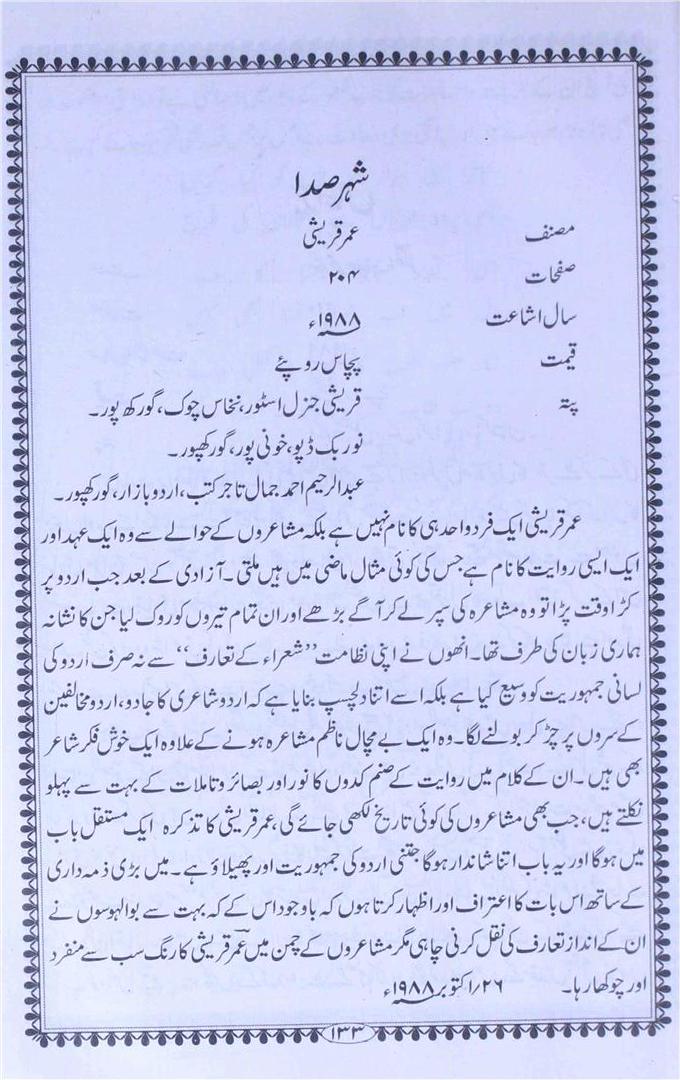 شہر صدا
مصنف عمر قریشی
صفحات ۲۰۴
سال اشاعت ۱۹۸۸ء
قیمت پچاس روپئے
پتہ قریشی جنرل اسٹور، نخاس چوک، گورکھ پور۔
نور بک ڈپو، خونی پور، گورکھپور۔
عبدالرحیم احمد جمال تاجر کتب، اردو بازار، گورکھپور۔
عمر قریشی ایک فرد واحد ہی کا نام نہیں ہے بلکہ مشاعروں کے حوالے سے وہ ایک عہد اور
ایک ایسی روایت کا نام ہے جس کی کوئی مثال ماضی میں ہیں ملتی۔ آزادی کے بعد جب اردو پر
کڑا وقت پڑا تو وہ مشاعرہ کی سپر لے کر آگے بڑھے اور ان تمام تیروں کو روک لیا جن کا نشانہ
ہماری زبان کی طرف تھا۔ انھوں نے اپنی نظامت ’’شعراء کے تعارف‘‘ سے نہ صرف اردو کی
لسانی جمہوریت کو وسیع کیا ہے بلکہ اسے اتنا دلچسپ بنایا ہے کہ اردو شاعری کا جادو، اردو مخالفین
کے سروں پر چڑ کر بولنے لگا۔ وہ ایک بے مچال ناظم مشاعرہ ہونے کے علاوہ ایک خوش فکر شاعر
بھی ہیں۔ ان کے کلام میں روایت کے صنم کدوں کا نور اور بصائر و تاملات کے بہت سے پہلو
نکلتے ہیں، جب بھی مشاعروں کی کوئی تاریخ لکھی جائے گی، عمر قریشی کا تذکرہ ایک مستقل باب
میں ہوگا اور یہ باب اتنا شاندار ہوگا جتنی اردو کی جمہوریت اور پھیلاؤ ہے۔ میں بڑی ذمہ داری
کے ساتھ اس بات کا اعتراف اور اظہار کرتا ہوں کہ باوجود اس کے کہ بہت سے بوالہوسوں نے
ان کے انداز تعارف کی نقل کرنی چاہی مگر مشاعروں کے چمن میں عمرؔ قریشی کا رنگ سب سے منفرد
اور چوکھا رہا۔ ۲۶/اکتوبر ۱۹۸۸ء
۱۳۳